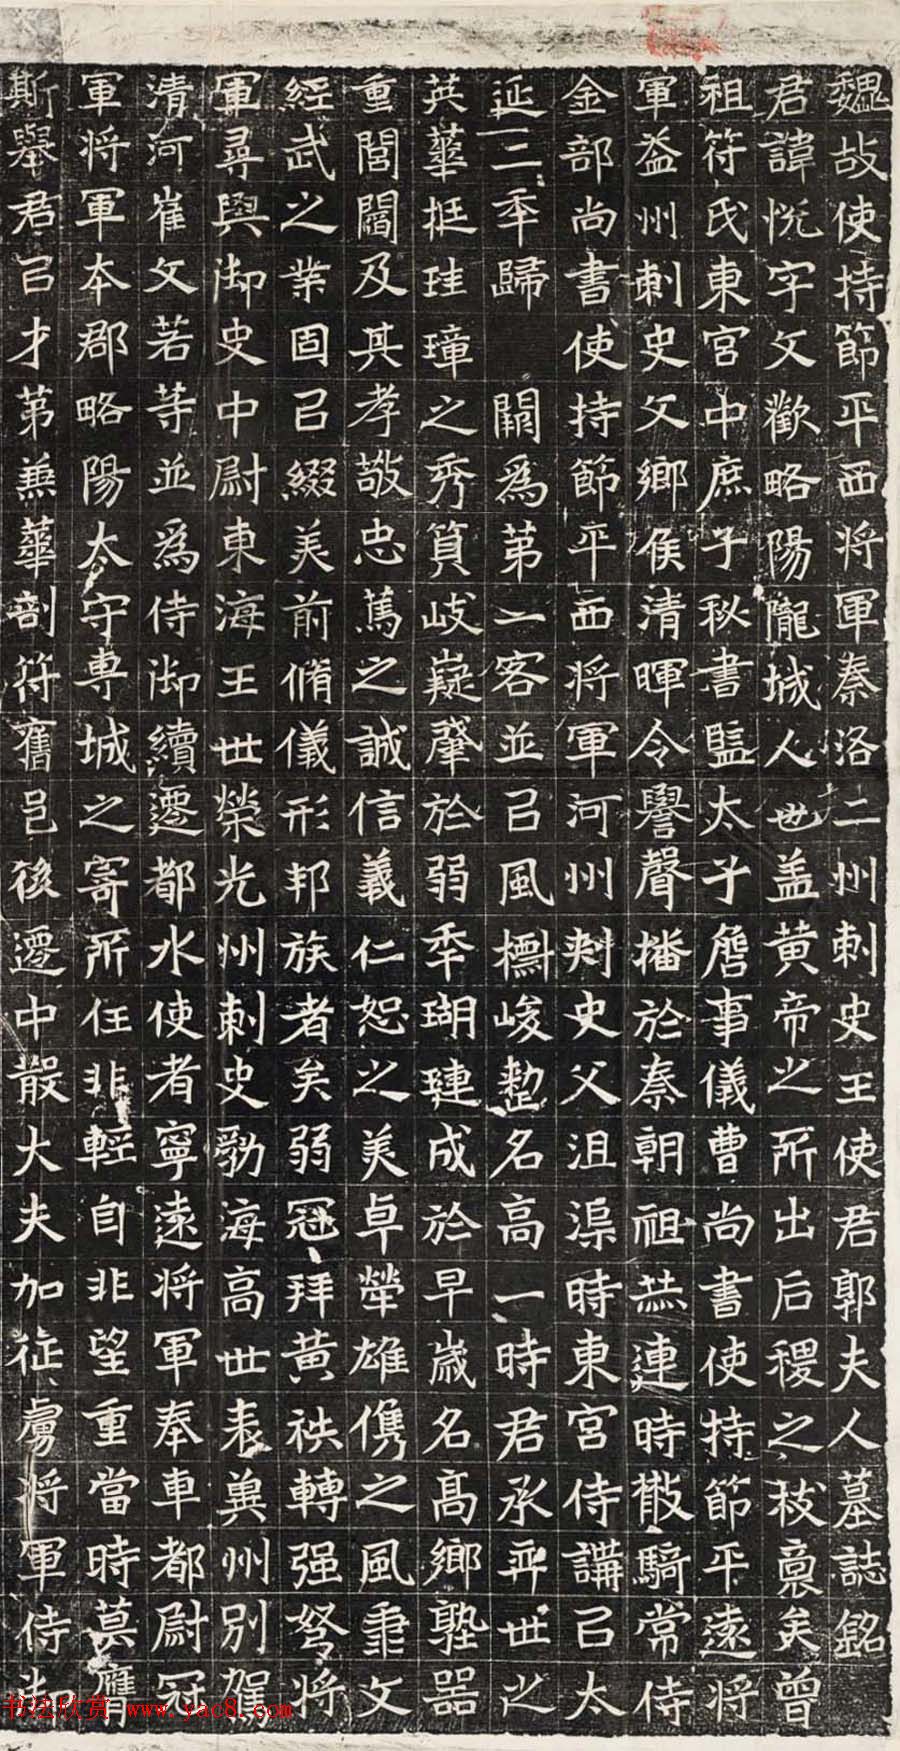 魏故使持節平西将軍秦洛二州刺史王使君郭夫人墓誌銘
君諱悅字文歡略陽隴城人也盖黄帝之所出后稷之枝裔矣曾
祖符氏東宮中庶子秘書監太子詹事儀曹尚書使持節平遠将
軍益州刺史文鄉侯清暉令譽聲播於秦朝祖恭連時散騎常侍
金部尚書使持節平西将軍河州刺史父沮渠時東宮侍講㠯太
延二年歸 闕爲第一客並㠯風檦峻整名高一時君承弈世之
英華挺珪璋之秀質岐嶷肇於弱年瑚璉成於早歲名高鄉塾器
重閭閻及其孝敬忠篤之誠信義仁恕之美卓犖雄儁之風秉文
經武之業固㠯綴美前脩儀形邦族者矣弱冠拜黄袟轉强弩将
軍尋與御史中尉東海王世榮光州刺史勃海高世表冀州別駕
清河崔文若等並爲侍御續遷都水使者寧遠将軍奉車都尉冠
軍将軍本郡略陽太守専城之寄所任非輕自非望重當時莫膺
斯舉君㠯才第兼華剖符舊邑後遷中散大夫加征虜将軍侍御
书法欣赏 www.yac8.com